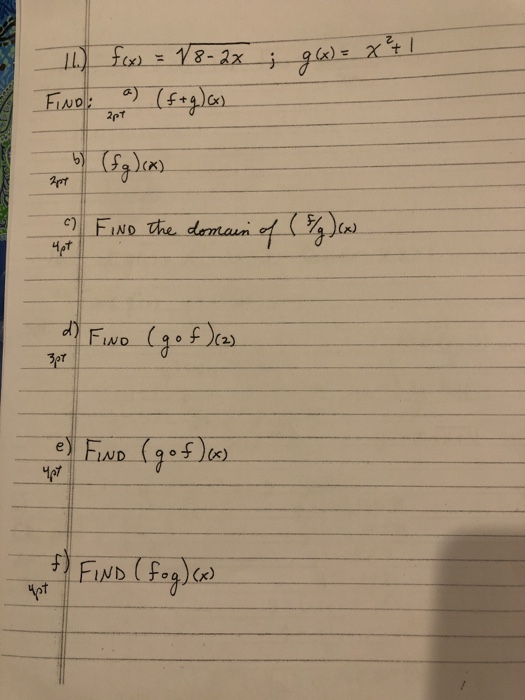 11.) f(x) = √8-2x ; g(x) = x²+1
FIND: a) (f+g)(x)
2pt
b) (fg)(x)
2pt
c) FIND the domain of (f/g)(x)
4pt
d) FIND (g∘f)(2)
3pt
e) FIND (g∘f)(x)
4pt
f) FIND (f∘g)(x)
4pt